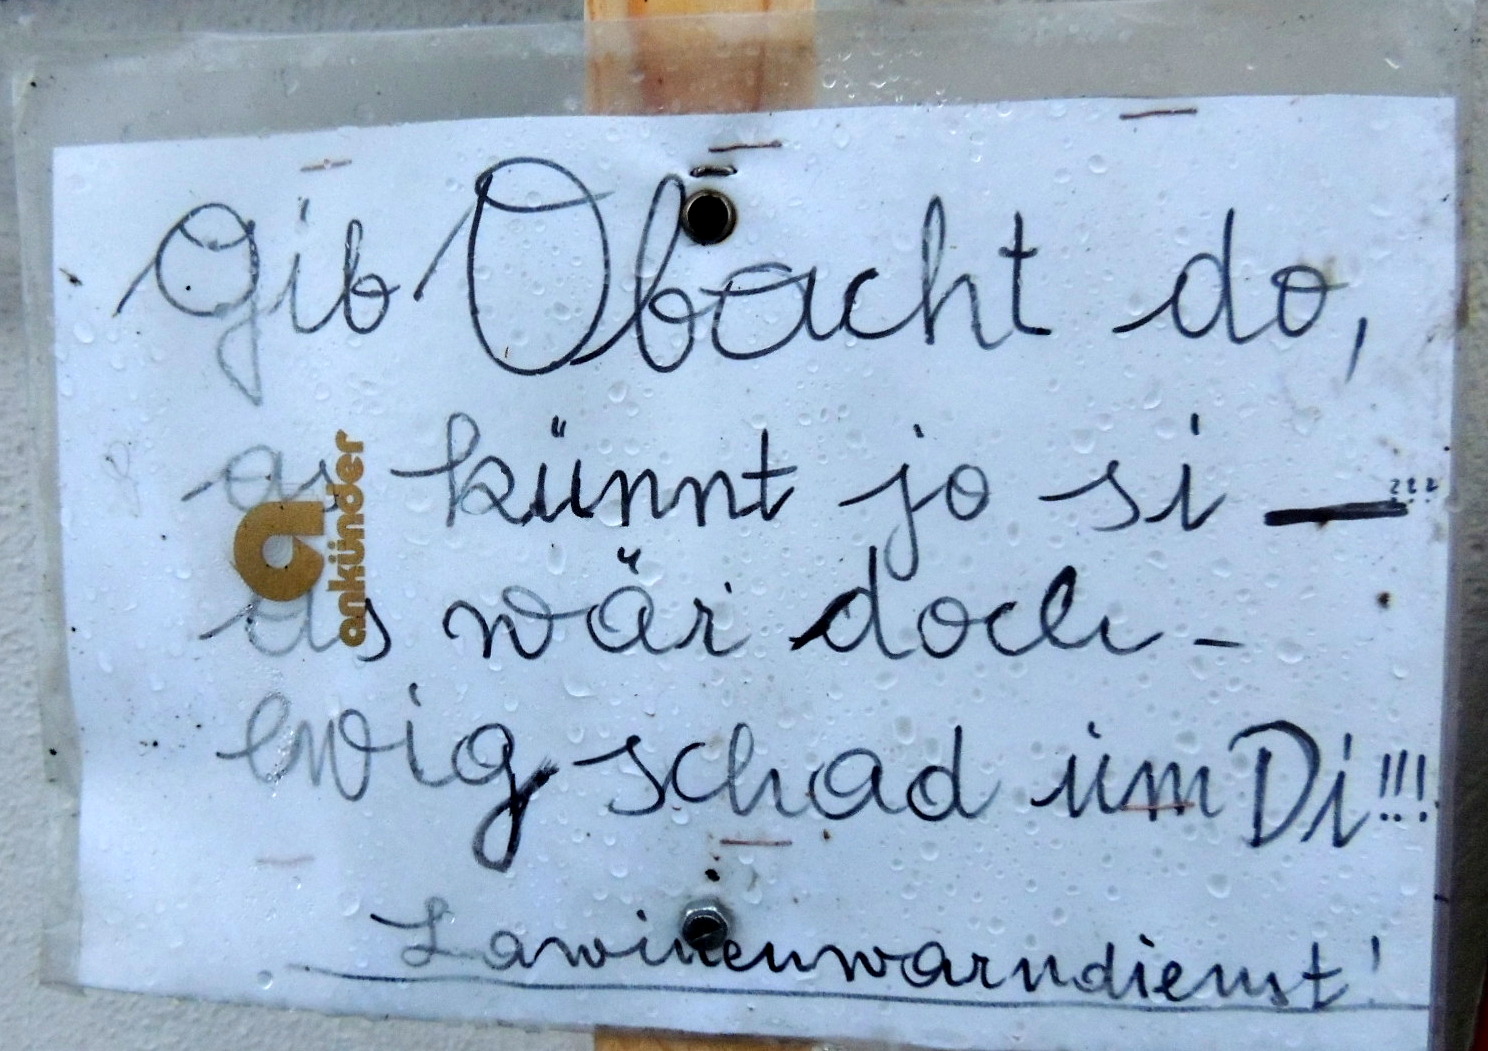 Gib Obacht do,
as künnt jo si — ???
as wär doch -
ewig schad um Di!!!
Lawinenwarndienst!
a ankünder